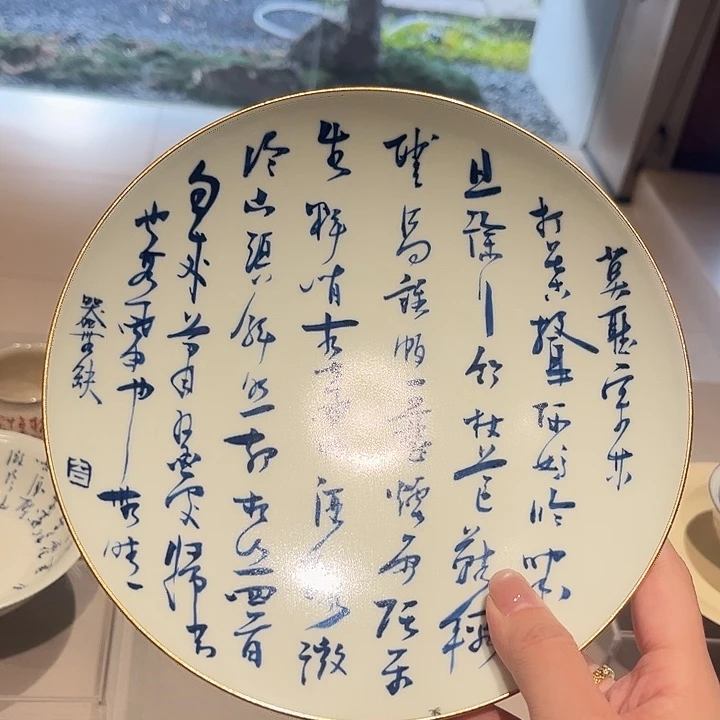 莫聽穿林
打葉聲何妨吟嘯
且徐行竹杖芒鞋輕
勝馬誰怕一蓑煙雨任平
生料峭春風吹酒醒微
冷山頭斜照却相迎回首
向來蕭瑟處歸去
也無風雨也無晴